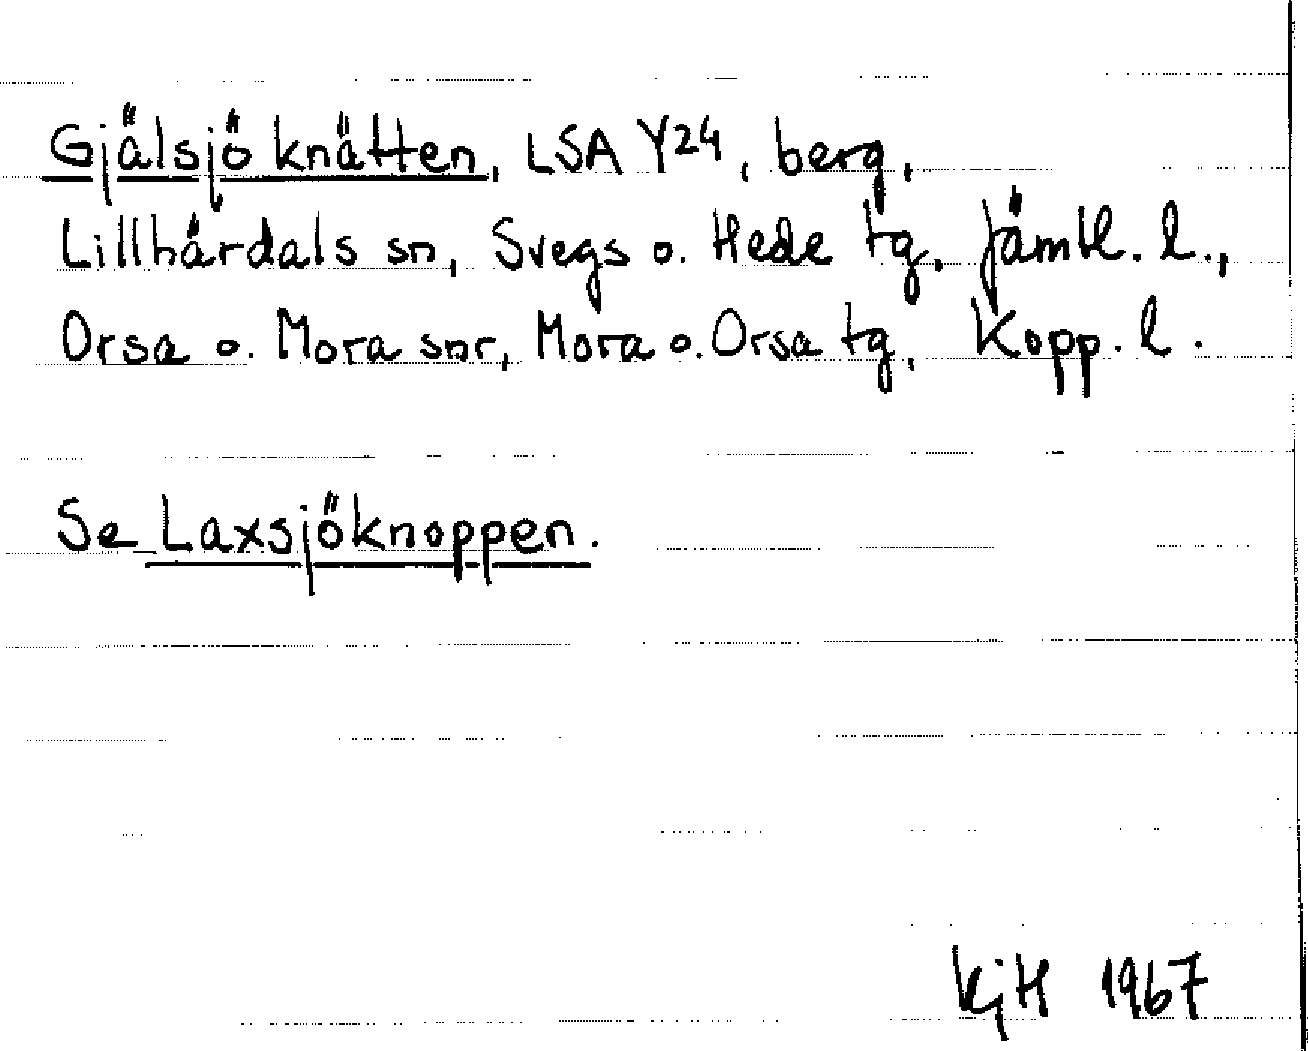 Gjälsjöknätten, LSA Y24, berg,
Lillhärdals sn, Svegs o. Hede tg, Jämtl. l.,
Orsa o. Mora snr, Mora o. Orsa tg, Kopp. l.
Se Laxsjöknoppen.
KjH 1967